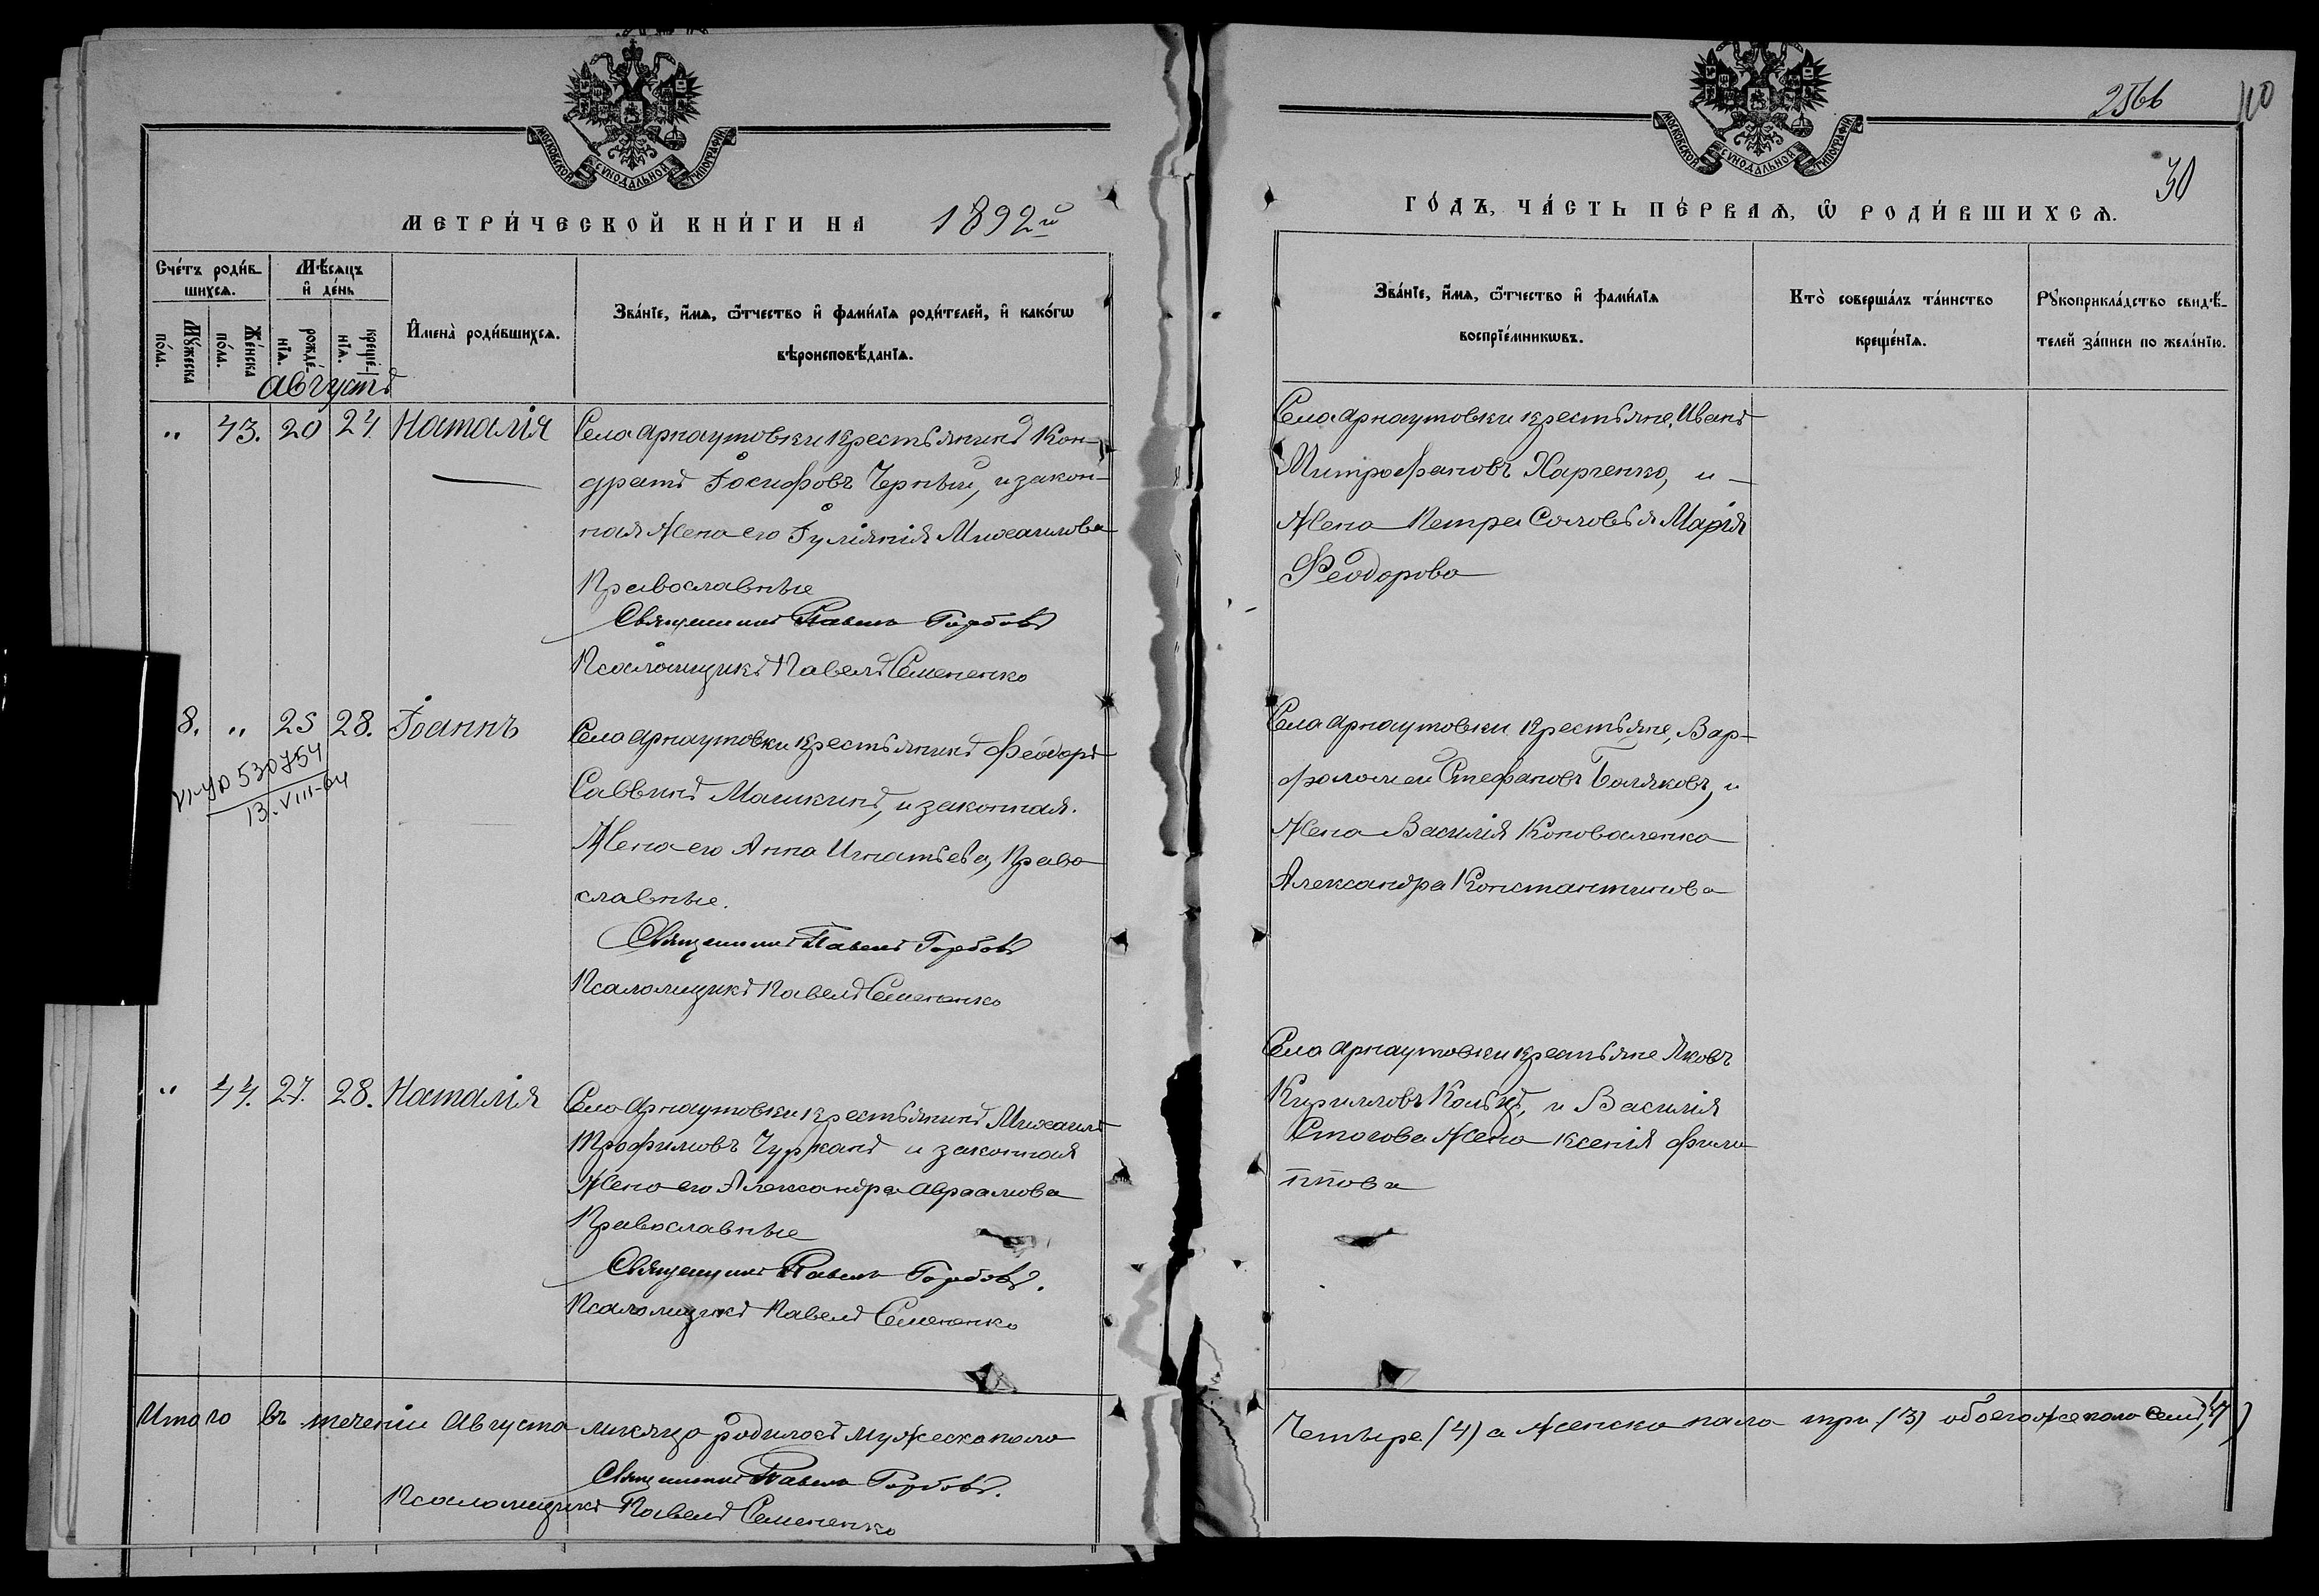 МОСКОВСКОЙ СѴНОДАЛЬНОЙ ТИПОГРАФІИ
МЕТРИ́ЧЕСКОЙ КНИ́ГИ НА 1892й
Сче́тъ роди́вшихсѧ.
Мꙋ́жеска по́ла.
Же́нска по́ла.
Мѣ́сѧцъ и҆ де́нь
рожде́нїѧ.
креще́нїѧ.
И҆мена̀ роди́вшихсѧ.
Зва́нїе, и҆́мѧ, ѻ҆́тчество и҆ фами́лїѧ роди́телей, и҆ како́гѡ
вѣроисповѣ́данїѧ.
Августъ
„ 43. 20 24. Наталія
Села Арнаутовки крестьянинъ Кон-
дратъ Іосифовъ Черный, и закон-
ная жена его Іуліянія Михаилова
Православные
Священникъ Павелъ Горбовъ
Псаломщикъ Павелъ Семененко
8. „ 25 28. Іоаннъ
Села Арнаутовки крестьянинъ Феодоръ
Саввинъ Машкинъ, и законная
жена его Анна Игнатьева, Право
славные.
Священникъ Павелъ Горбовъ
Псаломщикъ Павелъ Семененко
530754
13.VIII-64
„ 44. 27. 28. Наталія
Села Арнаутовки крестьянинъ Михаилъ
Трофимовъ Чурканъ и законная
жена его Александра Авраамова
Православные
Священникъ Павелъ Горбовъ.
Псаломщикъ Павелъ Семененко
Итого въ теченіи Августа мѣсяца родилось мужеска пола
Священникъ Павелъ Горбовъ.
Псаломщикъ Павелъ Семененко
МОСКОВСКОЙ СѴНОДАЛЬНОЙ ТИПОГРАФІИ
110
30
ГО́ДЪ, ЧА́СТЬ ПЕ́РВАѦ, Ѡ҆ РОДИ́ВШИХСѦ.
Зва́нїе, и҆́мѧ, ѻ҆́тчество и҆ фами́лїѧ
воспрїе́мникѡвъ.
Кто̀ соверша́лъ та́инство
креще́нїѧ.
Рꙋкоприкла́дство свидѣ́-
телей за́писи по жела́нїю.
Села Арнаутовки крестьяне, Иванъ
Митрофановъ Харченко, и
жена Петра Соловья Марія
Феодорова
Села Арнаутовки крестьяне, Вар-
фоломей Стефановъ Боляковъ, и
жена Василія Коноваленка
Александра Константинова
Села Арнаутовки крестьяне Яковъ
Кирилловъ и Василія
Стогова жена Ксенія Фили
ппова
Четыре (4) а женска пола три (3) обоего же пола семь (7)